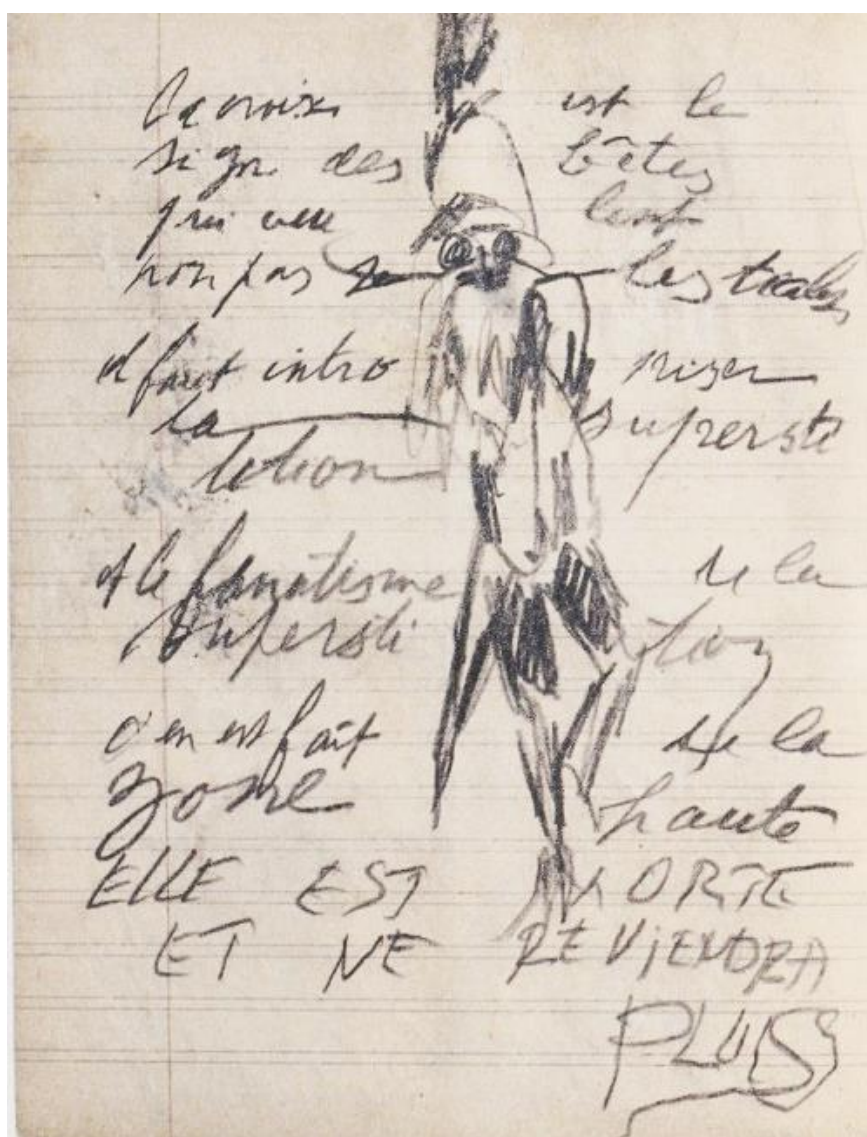 La croix est le
signe des bêtes
qui veulent
non pas les
il faut intro niser
la supersti
tition
et le fanatisme de la
supersti tion
c'en est fait de la
zone haute
ELLE EST MORTE
ET NE REVIENDRA
PLUS